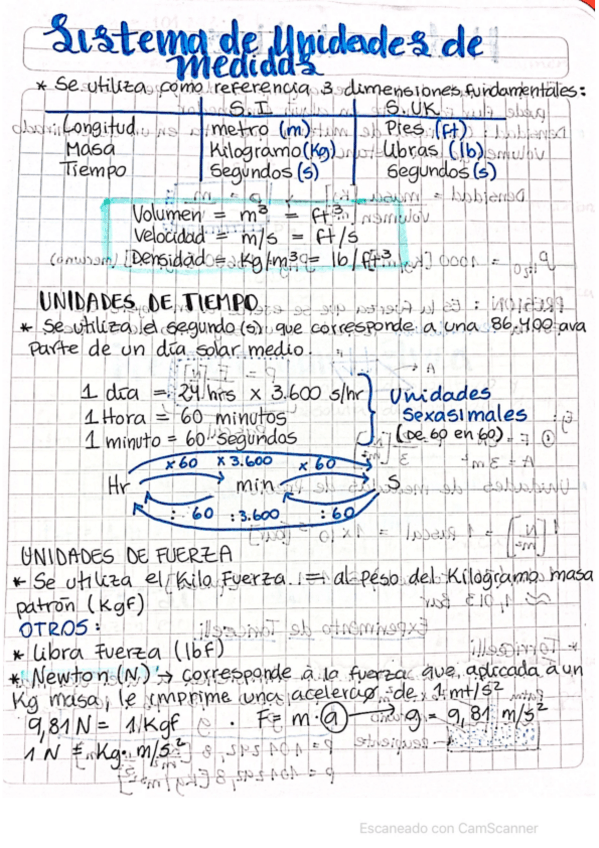 Sistema de Unidades de
Medidas
* Se utiliza como referencia 3 dimensiones fundamentales:
S.I S.UK
Longitud metro (m) Pies (ft)
Masa Kilogramo (Kg) Libras (lb)
Tiempo Segundos (s) Segundos (s)
Volumen = m³ = ft³
Velocidad = m/s = ft/s
Densidad = Kg/m³ = lb/ft³
UNIDADES DE TIEMPO
* Se utiliza el segundo (s) que corresponde a una 86.400 ava
Parte de un día solar medio.
1 día = 24 hrs x 3.600 s/hr
1 Hora = 60 minutos
1 minuto = 60 Segundos
Unidades
Sexasimales
(De 60 en 60)
x60 x3.600 x60
Hr min S
: 60 : 3.600 : 60
UNIDADES DE FUERZA
* Se utiliza el Kilo Fuerza = al peso del Kilogramo masa
patrón (KgF)
OTROS:
* Libra Fuerza (lbF)
* Newton (N) → corresponde a la fuerza que, aplicada a un
Kg masa, le imprime una acelerac. de 1 mt/s²
9,81 N = 1 Kgf . F = m · a → g = 9,81 m/s²
1 N = Kg · m/s²
Escaneado con CamScanner